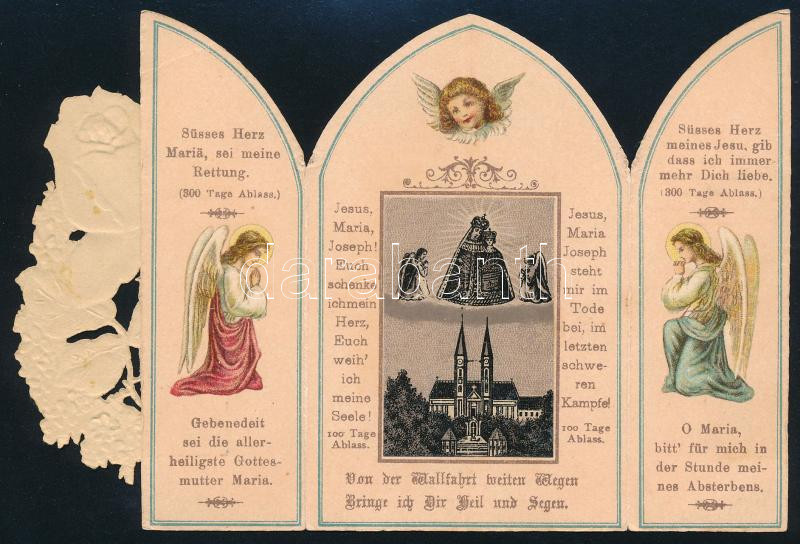 Süsses Herz
Mariä, sei meine
Rettung.
(300 Tage Ablass.)
Gebenedeit
sei die aller-
heiligste Gottes-
mutter Maria.
Jesus,
Maria,
Joseph!
Euch
schenke
ichmein
Herz,
Euch
weih'
ich
meine
Seele!
100 Tage
Ablass.
Jesus,
Maria
Joseph
steht
mir im
Tode
bei, im
letzten
schwe-
ren
Kampfe!
100 Tage
Ablass.
Von der Wallfahrt weiten Wegen
Bringe ich Dir Heil und Segen.
Süsses Herz
meines Jesu, gib
dass ich immer-
mehr Dich liebe.
(300 Tage Ablass.)
O Maria,
bitt' für mich in
der Stunde mei-
nes Absterbens.
darabanth